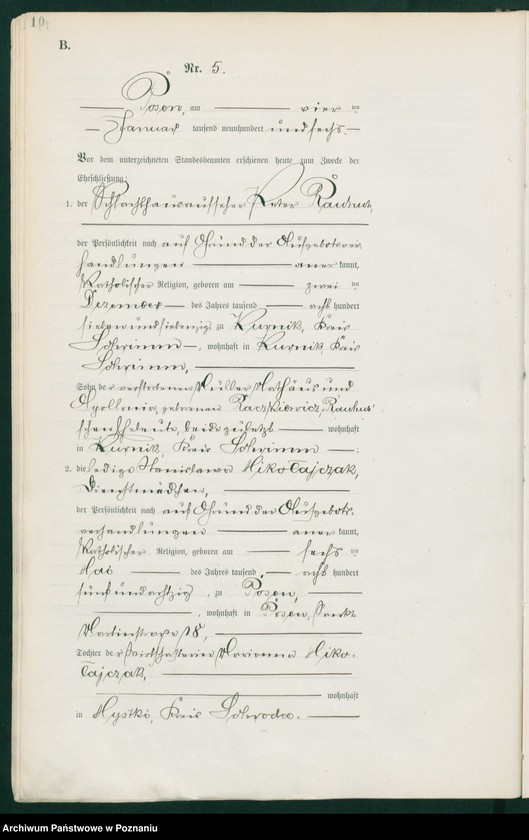 B.
Nr. 5.
Posen, am vier ten
Januar tausend neunhundert und sechs.
Vor dem unterzeichneten Standesbeamten erschienen heute zum Zwecke der
Eheschließung:
1. der Schlachthausaufseher Peter
der Persönlichkeit nach auf Grund der Aufgebotsver
handlungen aner kannt,
Katholischer Religion, geboren am zwei ten
Dezember des Jahres tausend acht hundert
sieben und siebenzig, zu Kurnik, Kreis
Schrimm, wohnhaft in Kurnik, Kreis
Schrimm,
Sohn der verstorbenen Müller Mathäus und
Apollonia, geborenen Raczkiewicz,
schen Eheleute, beide zuletzt wohnhaft
in Kurnik, Kreis Schrimm ;
2. die ledige Stanislawa Mikołajczak,
Dienstmädchen,
der Persönlichkeit nach auf Grund der Aufgebots
verhandlungen aner kannt,
Katholischer Religion, geboren am sechs ten
Mai des Jahres tausend acht hundert
fünf und achtzig, zu Posen,
, wohnhaft in Posen, Sankt
Martinstraße 18,
Tochter der Marianna Miko-
łajczak,
wohnhaft
in Kreis Schroda.
Archiwum Państwowe w Poznaniu